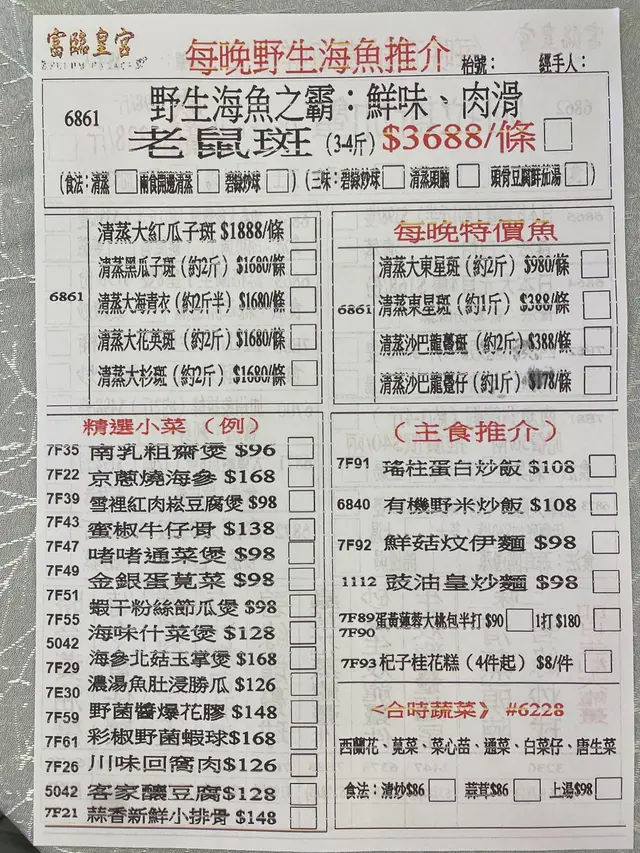 富臨皇宮
每晚野生海魚推介
枱號： 經手人：
6861
野生海魚之霸：鮮味、肉滑
老鼠斑 (3-4斤) $3688/條
(食法：清蒸 兩食開邊清蒸 碧綠炒球 ) (三味：碧綠炒球 清蒸頭腩 頭骨豆腐鮮茄湯 )
6861
清蒸大紅瓜子斑 $1888/條
清蒸黑瓜子斑（約2斤）$1680/條
清蒸大海青衣（約2斤半）$1680/條
清蒸大花英斑（約2斤）$1680/條
清蒸大杉斑（約2斤）$1680/條
每晚特價魚
6861
清蒸大東星斑（約2斤）$980/條
清蒸東星斑（約1斤）$388/條
清蒸沙巴龍躉斑（約2斤）$388/條
清蒸沙巴龍躉仔（約1斤）$178/條
精選小菜（例）
7F35 南乳粗齋煲 $96
7F22 京蔥燒海參 $168
7F39 雪裡紅肉崧豆腐煲 $98
7F43 蜜椒牛仔骨 $138
7F47 啫啫通菜煲 $98
7F49 金銀蛋莧菜 $98
7F51 蝦干粉絲節瓜煲 $98
7F55 海味什菜煲 $128
5042 海參北菇玉掌煲 $168
7F29 濃湯魚肚浸勝瓜 $126
7E30 野菌醬爆花膠 $148
7F59 彩椒野菌蝦球 $168
7F61 川味回窩肉 $126
7F26 客家釀豆腐 $128
5042 蒜香新鮮小排骨 $148
7F21
（主食推介）
7F91 瑤柱蛋白炒飯 $108
6840 有機野米炒飯 $108
7F92 鮮菇炆伊麵 $98
1112 豉油皇炒麵 $98
7F89 蛋黃蓮蓉大桃包半打 $90 1打 $180
7F90
7F93 杞子桂花糕（4件起）$8/件
<合時蔬菜》 #6228
西蘭花、莧菜、菜心苗、通菜、白菜仔、唐生菜
食法：清炒$86 蒜茸$86 上湯$98